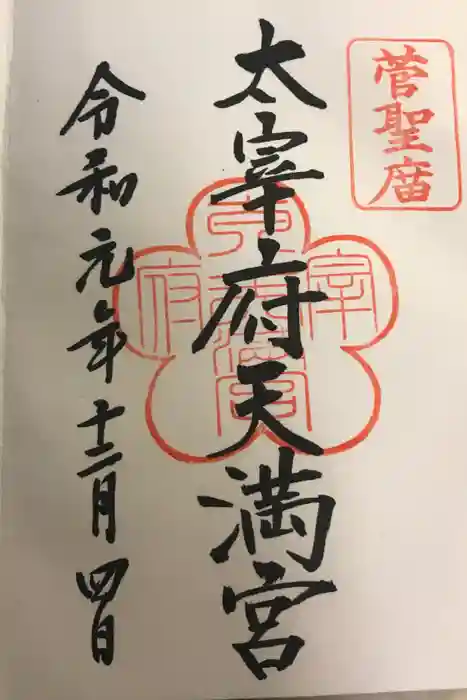 菅聖廟
太宰府天満宮
令和元年十二月四日